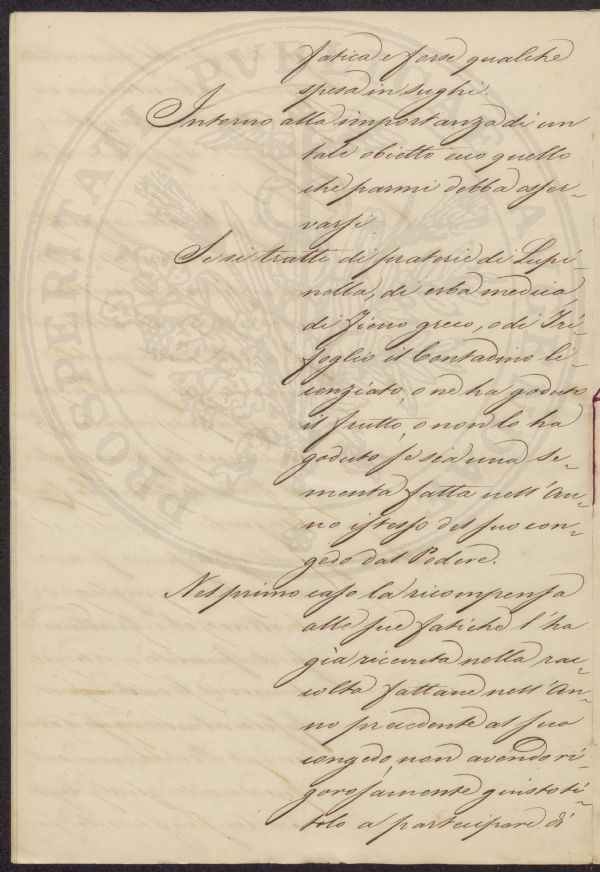 fatica e forse qualche
spesa in sughi.
Intorno alla importanza di un
tale obietto ecco quello
che parmi debba osser-
varsi
Se si tratti di praterie di Lupi-
nella, di erba medica,
di fieno greco, o di Tri-
foglio il Contadino li-
cenziato, o ne ha goduto
il frutto, o non lo ha
goduto se sia una se-
menta fatta nell'An-
no istesso del suo con-
gedo dal Podere.
Nel primo caso la ricompensa
alle sue fatiche l'ha
già ricevuta nella rac-
colta fattane nell'An-
no precedente al suo
congedo, non avendo ri-
gorosamente giusto ti-
tolo a partecipare di
PROSPERITATI PUBLICAE